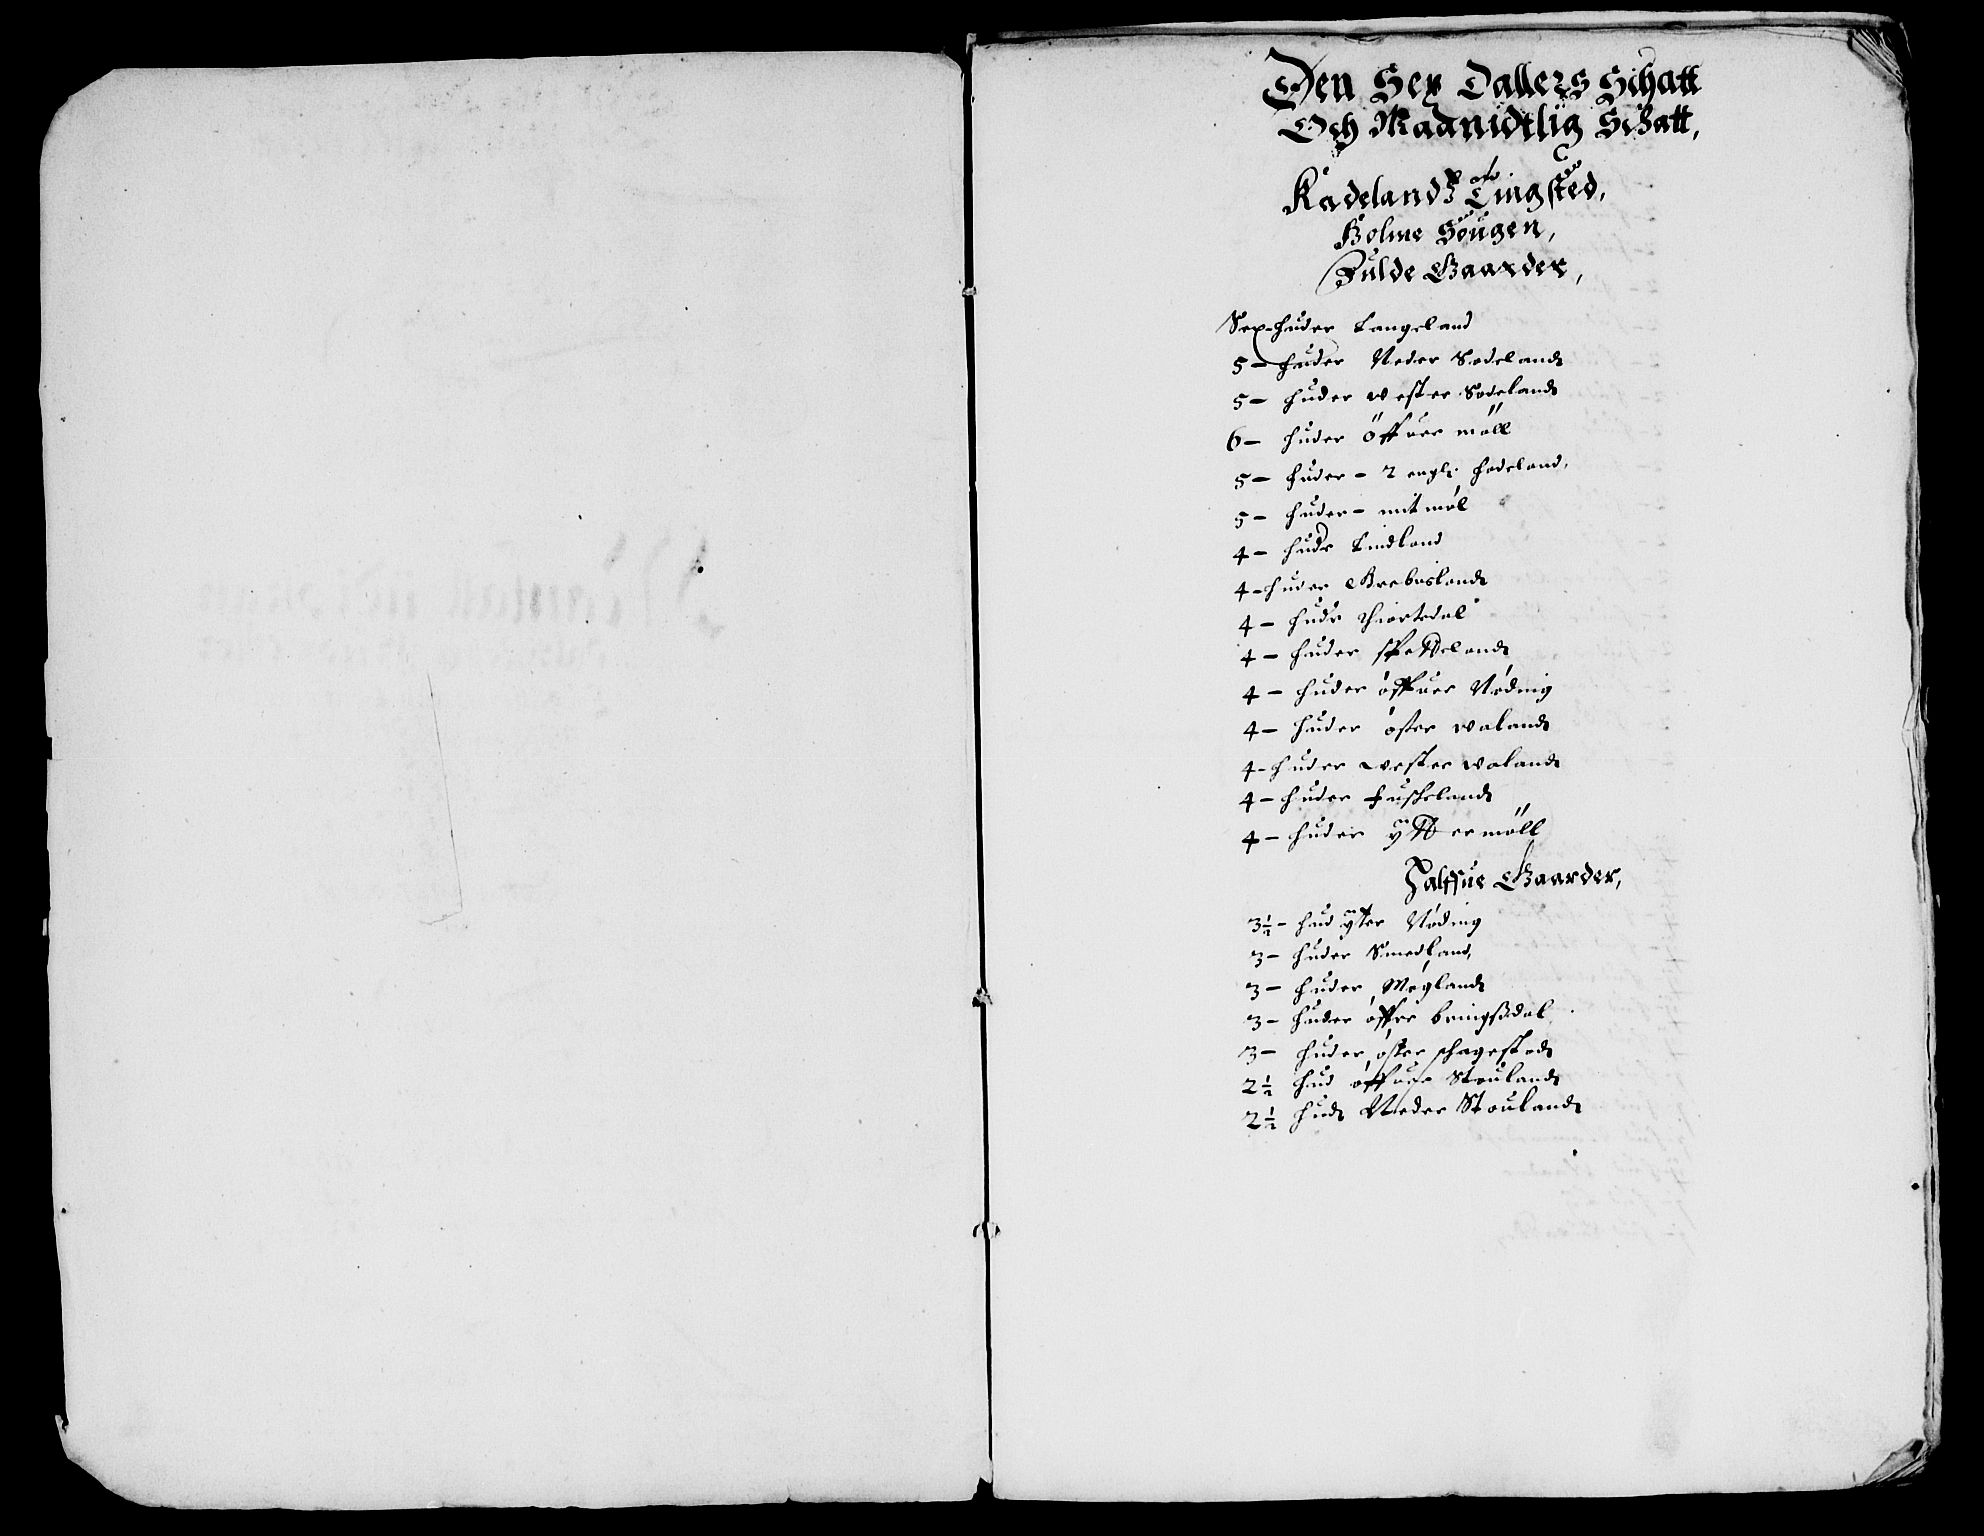 Den Sex Dallers Schatt
Och Maanidtlig Schatt,
Kadelandtz Tingsted,
Holme Sougen,
Fulde Gaarder,
Sex huder Langeland
5 - huder Neder Sodeland
5 - huder wester Sodeland
6 - huder öffuer möll
5 - huder - 2 engl: hodeland,
5 - huder - mit möl
4 - hudr Lindland
4 - huder Grebusland
4 - hudr hiortedal
4 - huder spetteland
4 - huder öffuer Nöding
4 - huder öster waland
4 - huder wester waland
4 - huder Fuskeland
4 - huder ytter möll
Halffue Gaarder,
3½ - hud yter Nöding
3 - huder Smedland,
3 - huder Megland
3 - huder öffre bringsdal
3 - huder öster skagestad
2½ hud öffuer Stouland
2½ hud Neder Stouland